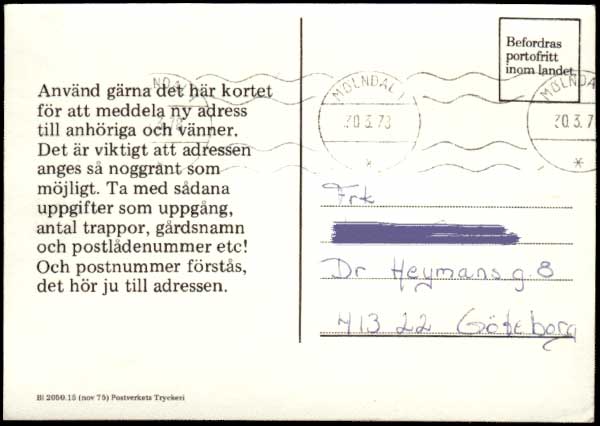 Använd gärna det här kortet
för att meddela ny adress
till anhöriga och vänner.
Det är viktigt att adressen
anges så noggrant som
möjligt. Ta med sådana
uppgifter som uppgång,
antal trappor, gårdsnamn
och postlådenummer etc!
Och postnummer förstås,
det hör ju till adressen.
Bl 2050.15 (nov 75) Postverkets Tryckeri
Befordras
portofritt
inom landet
MÖLNDAL 1
30.3.78
MÖLNDA
30.3.7
Frk
Dr Heymans g. 8
413 22 Göteborg